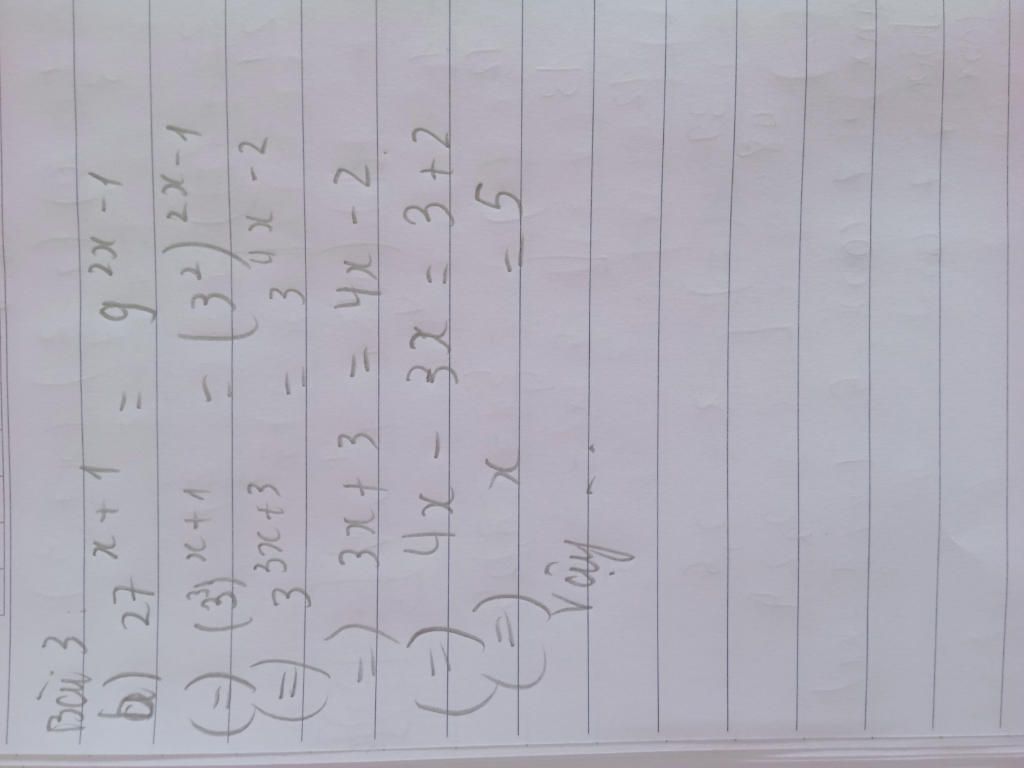 Bài 3
b) 27^{x+1} = 9^{2x-1}
(=) (3³)^{x+1} = (3²)^{2x-1}
(=) 3^{3x+3} = 3^{4x-2}
=) 3x+3 = 4x-2
(=) 4x - 3x = 3+2
(=) x = 5
Vậy ...